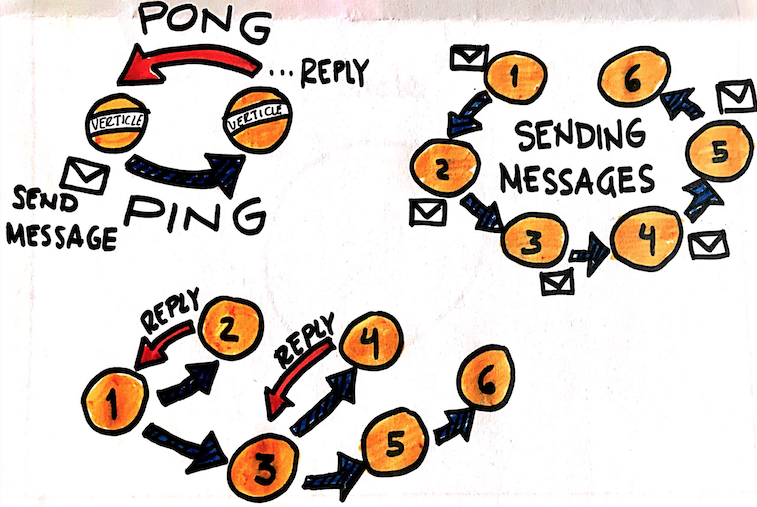 PONG
... REPLY
VERTICLE
VERTICLE
SEND
MESSAGE
PING
1
6
SENDING
MESSAGES
2
5
3
4
REPLY
2
REPLY
4
1
6
5
3